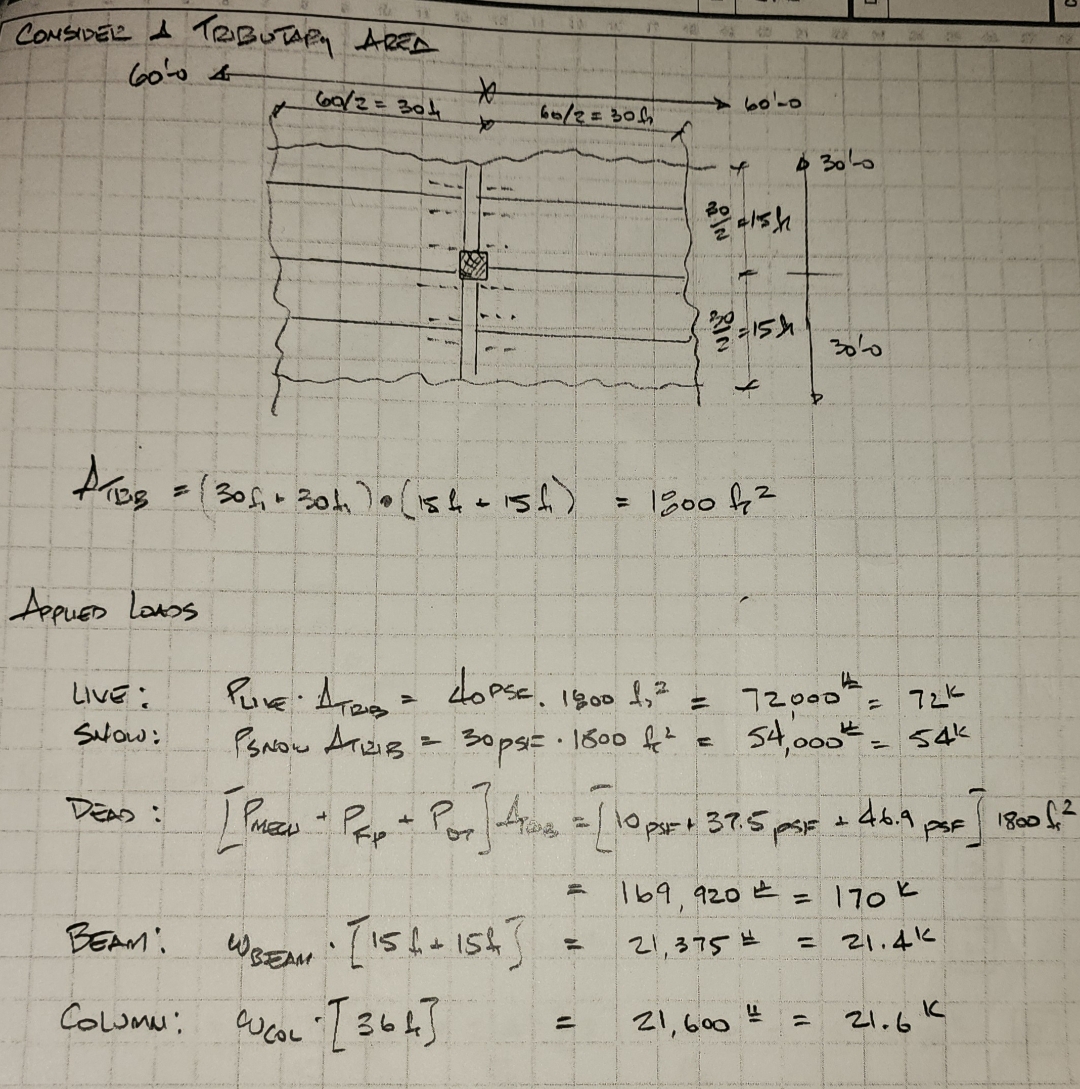 CONSIDER A TRIBUTARY AREA
60'-0 60'-0
60/2 = 30 ft 60/2 = 30 ft
30'-0
30/2 = 15 ft
30/2 = 15 ft
30'-0
A TRIB = (30 ft + 30 ft) • (15 ft + 15 ft) = 1800 ft²
APPLIED LOADS
LIVE: P LIVE · A TRIB = 40 PSF · 1800 ft² = 72,000 # = 72 K
SNOW: P SNOW A TRIB = 30 PSF · 1800 ft² = 54,000 # = 54 K
DEAD: [P MECH + P FP + P DT] A TRIB = [10 PSF + 37.5 PSF + 46.9 PSF] 1800 ft²
= 169,920 # = 170 K
BEAM: ω BEAM · [15 ft + 15 ft] = 21,375 # = 21.4 K
COLUMN: ω COL · [36 ft] = 21,600 # = 21.6 K